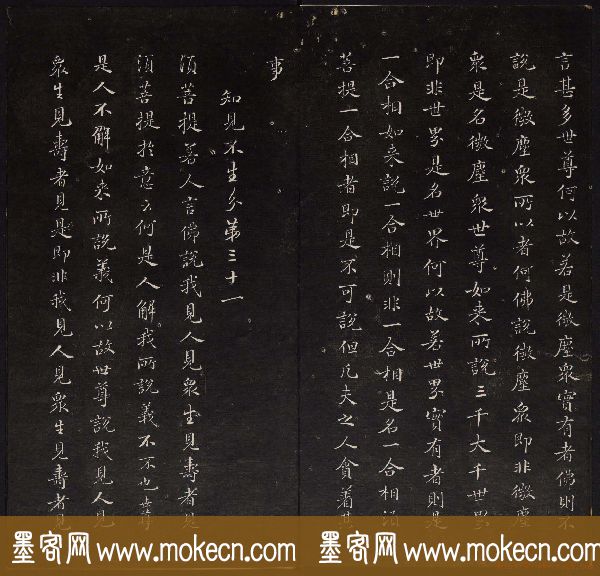 言甚多世尊何以故若是微塵衆實有者佛則不
說是微塵衆所以者何佛說微塵衆即非微塵
衆是名微塵衆世尊如来所說三千大千世界
即非世界是名世界何以故若世界實有者則是
一合相如来說一合相則非一合相是名一合相須
菩提一合相者即是不可說但凡夫之人貪着其
事
知見不生分第三十一
須菩提若人言佛說我見人見衆生見壽者見
須菩提於意云何是人解我所說義不不也世尊
是人不解如来所說義何以故世尊說我見人見
衆生見壽者見是即非我見人見衆生見壽者見
墨客网 www.mokecn.com 墨客网 www.mokecn.com